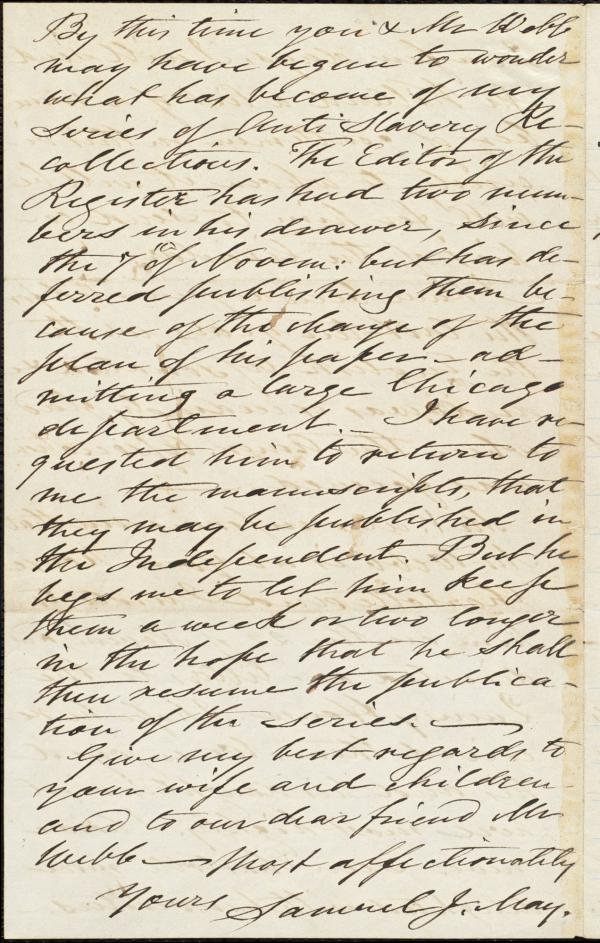 By this time you & Mr Webb
may have begun to wonder
what has become of my
series of Anti Slavery Re-
collections. The Editor of the
Register has had two num-
bers in his drawer, since
the 7th of Novem: but has de-
ferred publishing them be-
cause of the change of the
plan of his paper - ad-
mitting a large Chicago
department. - I have re-
quested him to return to
me the manuscripts, that
they may be published in
the Independent. But he
begs me to let him keep
them a week or two longer
in the hope that he shall
then resume the publica-
tion of the series. —
Give my best regards to
your wife and children
and to our dear friend Mr
Webb — Most affectionately
Yours Samuel J. May.